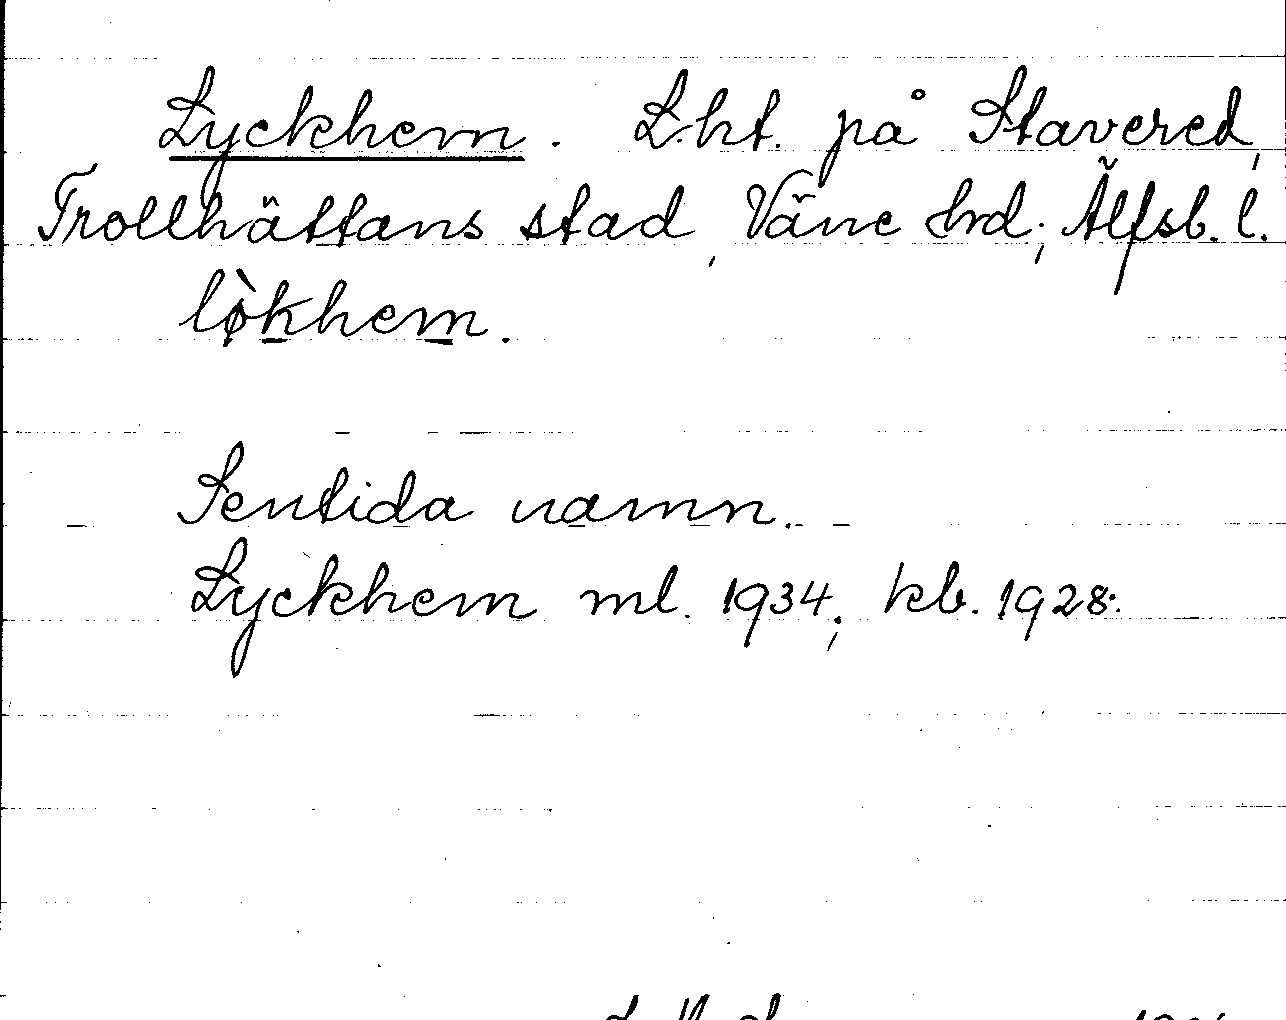 Lyckhem. Lht. på Stavered,
Trollhättans stad, Väne hd; Älfsb. l.
lø̀khem.
Sentida namn.
Lyckhem ml. 1934; kb. 1928.